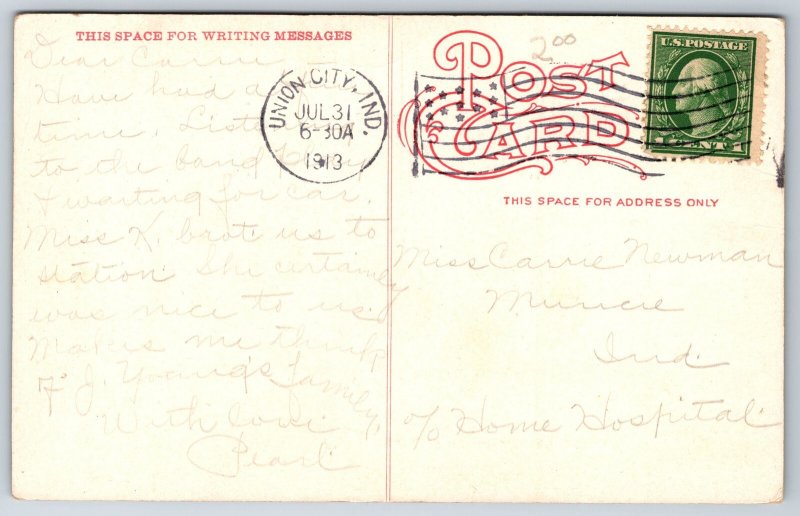 THIS SPACE FOR WRITING MESSAGES
Dear Carrie
Have had a
time. Listening
to the band play
& waiting for car.
Miss K. brot us to
station. She certainly
was nice to us.
Makes me think
of J. Young's family.
With love
Pearl
UNION CITY, IND.
JUL 31
6-30A
1913
2.00
POST
CARD
U.S. POSTAGE
1 CENT 1
THIS SPACE FOR ADDRESS ONLY
Miss Carrie Newman
Muncie
Ind.
c/o Home Hospital